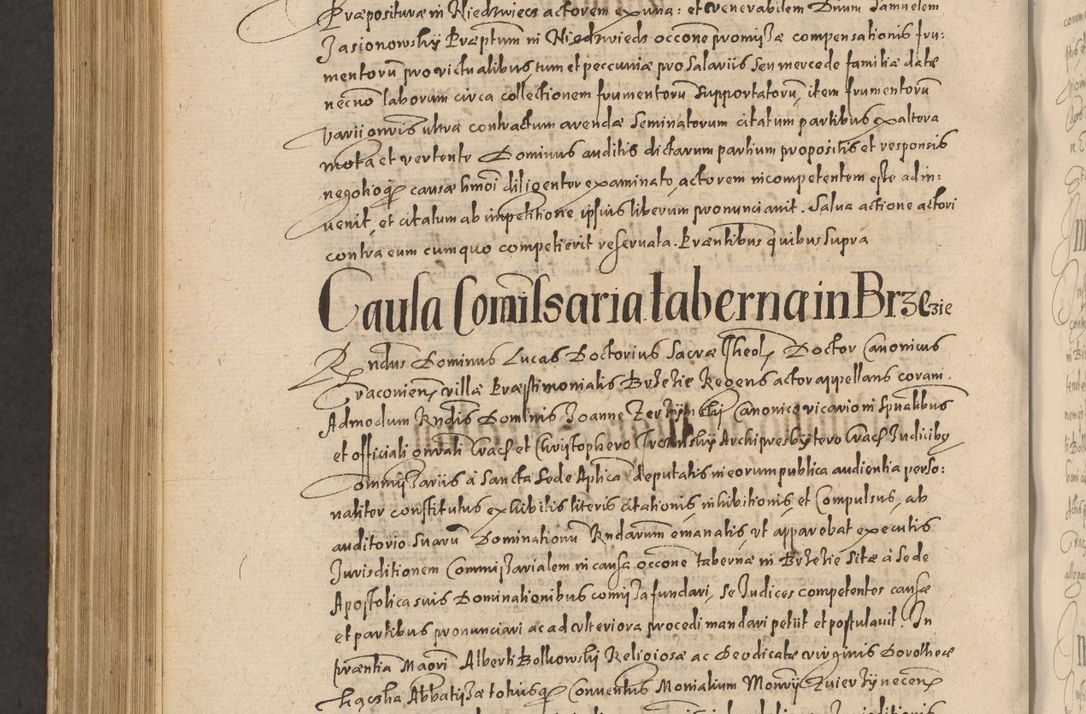 Præposituræ in Niedzwiecz actorem ex una: et venerabilem Dnum Samuelem
Jasionowsky Præptum in Niedzwiedz occone promissæ compensationis fru:
mentorum pro victualibus tum et peccuniæ pro salariis seu mercede familiæ datæ
necno laborum circa collectionem frumentoru supportatoru, item frumentorum
varii onris ultra contractum arendæ seminatorum citatum partibus ex altera
mota et vertente Dominus auditis dictarum partium propositis et responsis
negotioq causæ hmoi diligenter examinato, actorem incompetentem esse adin:
venit, et citatum ab impetitione ipsius liberum pronunciavit. Salva actione actori
contra eum cum quo competierit reservata. Præntibus quibus supra
Causa Comissaria taberna in Brzezie
Rndus Dominus Lucas Doctorius Sacræ Theol Doctor Canonicus
Cracovien villæ Præstimonialis Brzezie Regens actor appellans coram
Admodum Rndis Dominis Joanne Canonico vicario in spualibus
et officiali gnrali Crac et Christophero Archipresbytero Crac Judicibq
Commissariis à Sancta Sede Aplica deputatis in eorum publica audientia perso:
naliter constitutus exhibitis literis citationis, inhibitionis, et Compulsus, ab
auditorio suaru Dominationu Rndarum emanatis, ut apparebat executis
Jurisditionem Commissarialem in causa occone tabernæ in Brzezie sitæ à Sede
Apostolica suis Dominationibus comissa fundari, se Judices competentes causæ
et partibus pronunciari ac ad ulteriora procedi mandari petiit et postulavit. In
præntia Maori Alberti Bolkowsky Religiosæ ac Deodicatæ virginis Dorotheæ
Abbatissæ totiusq Conventus Monialium Monrij necen